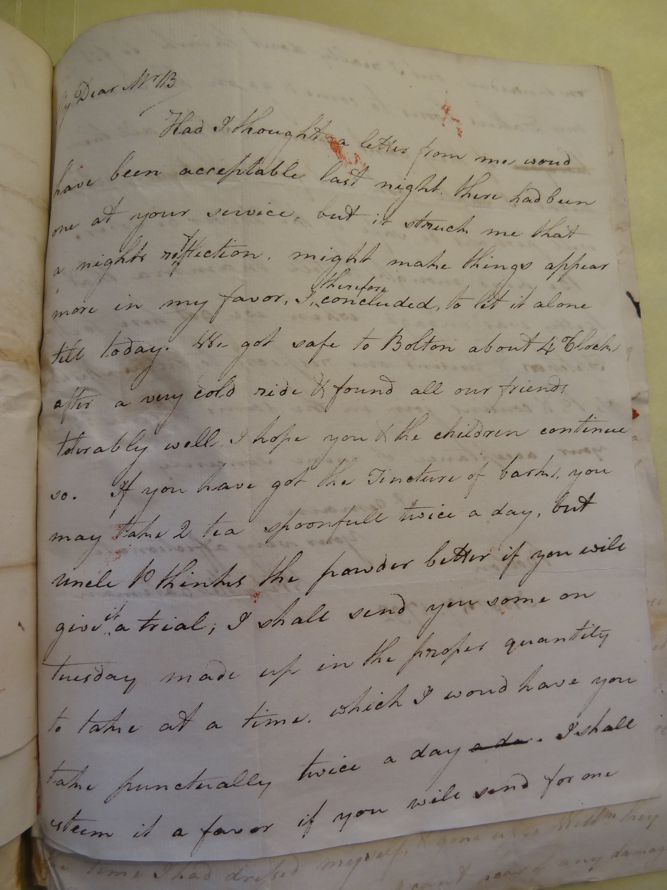 My Dear Mr B
Had I thought a letter from me woud
have been acceptable last night. there had been
one at your service, but it struck me that
a nights reflection. might make things appear
more in my favor, I, therefore concluded, to let it alone
till today. We got safe to Bolton about 4 O'Clock
after a very cold ride & found all our friends
tolerably well I hope you & the children continue
so. If you have got the Tincture of bark, you
may take 2 tea spoonfull twice a day, but
uncle P thinks the powder better if you will
give it a trial; I shall send you some on
tuesday made up in the proper quantity
to take at a time. which I woud have you
take punctually twice a day a da. I shall
esteem it a favor if you will send for me
time I had dressed myself, &
any damage